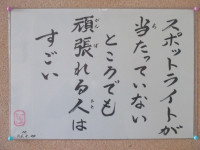 スポットライトが
当たっていない
ところでも
頑張れる人は
すごい